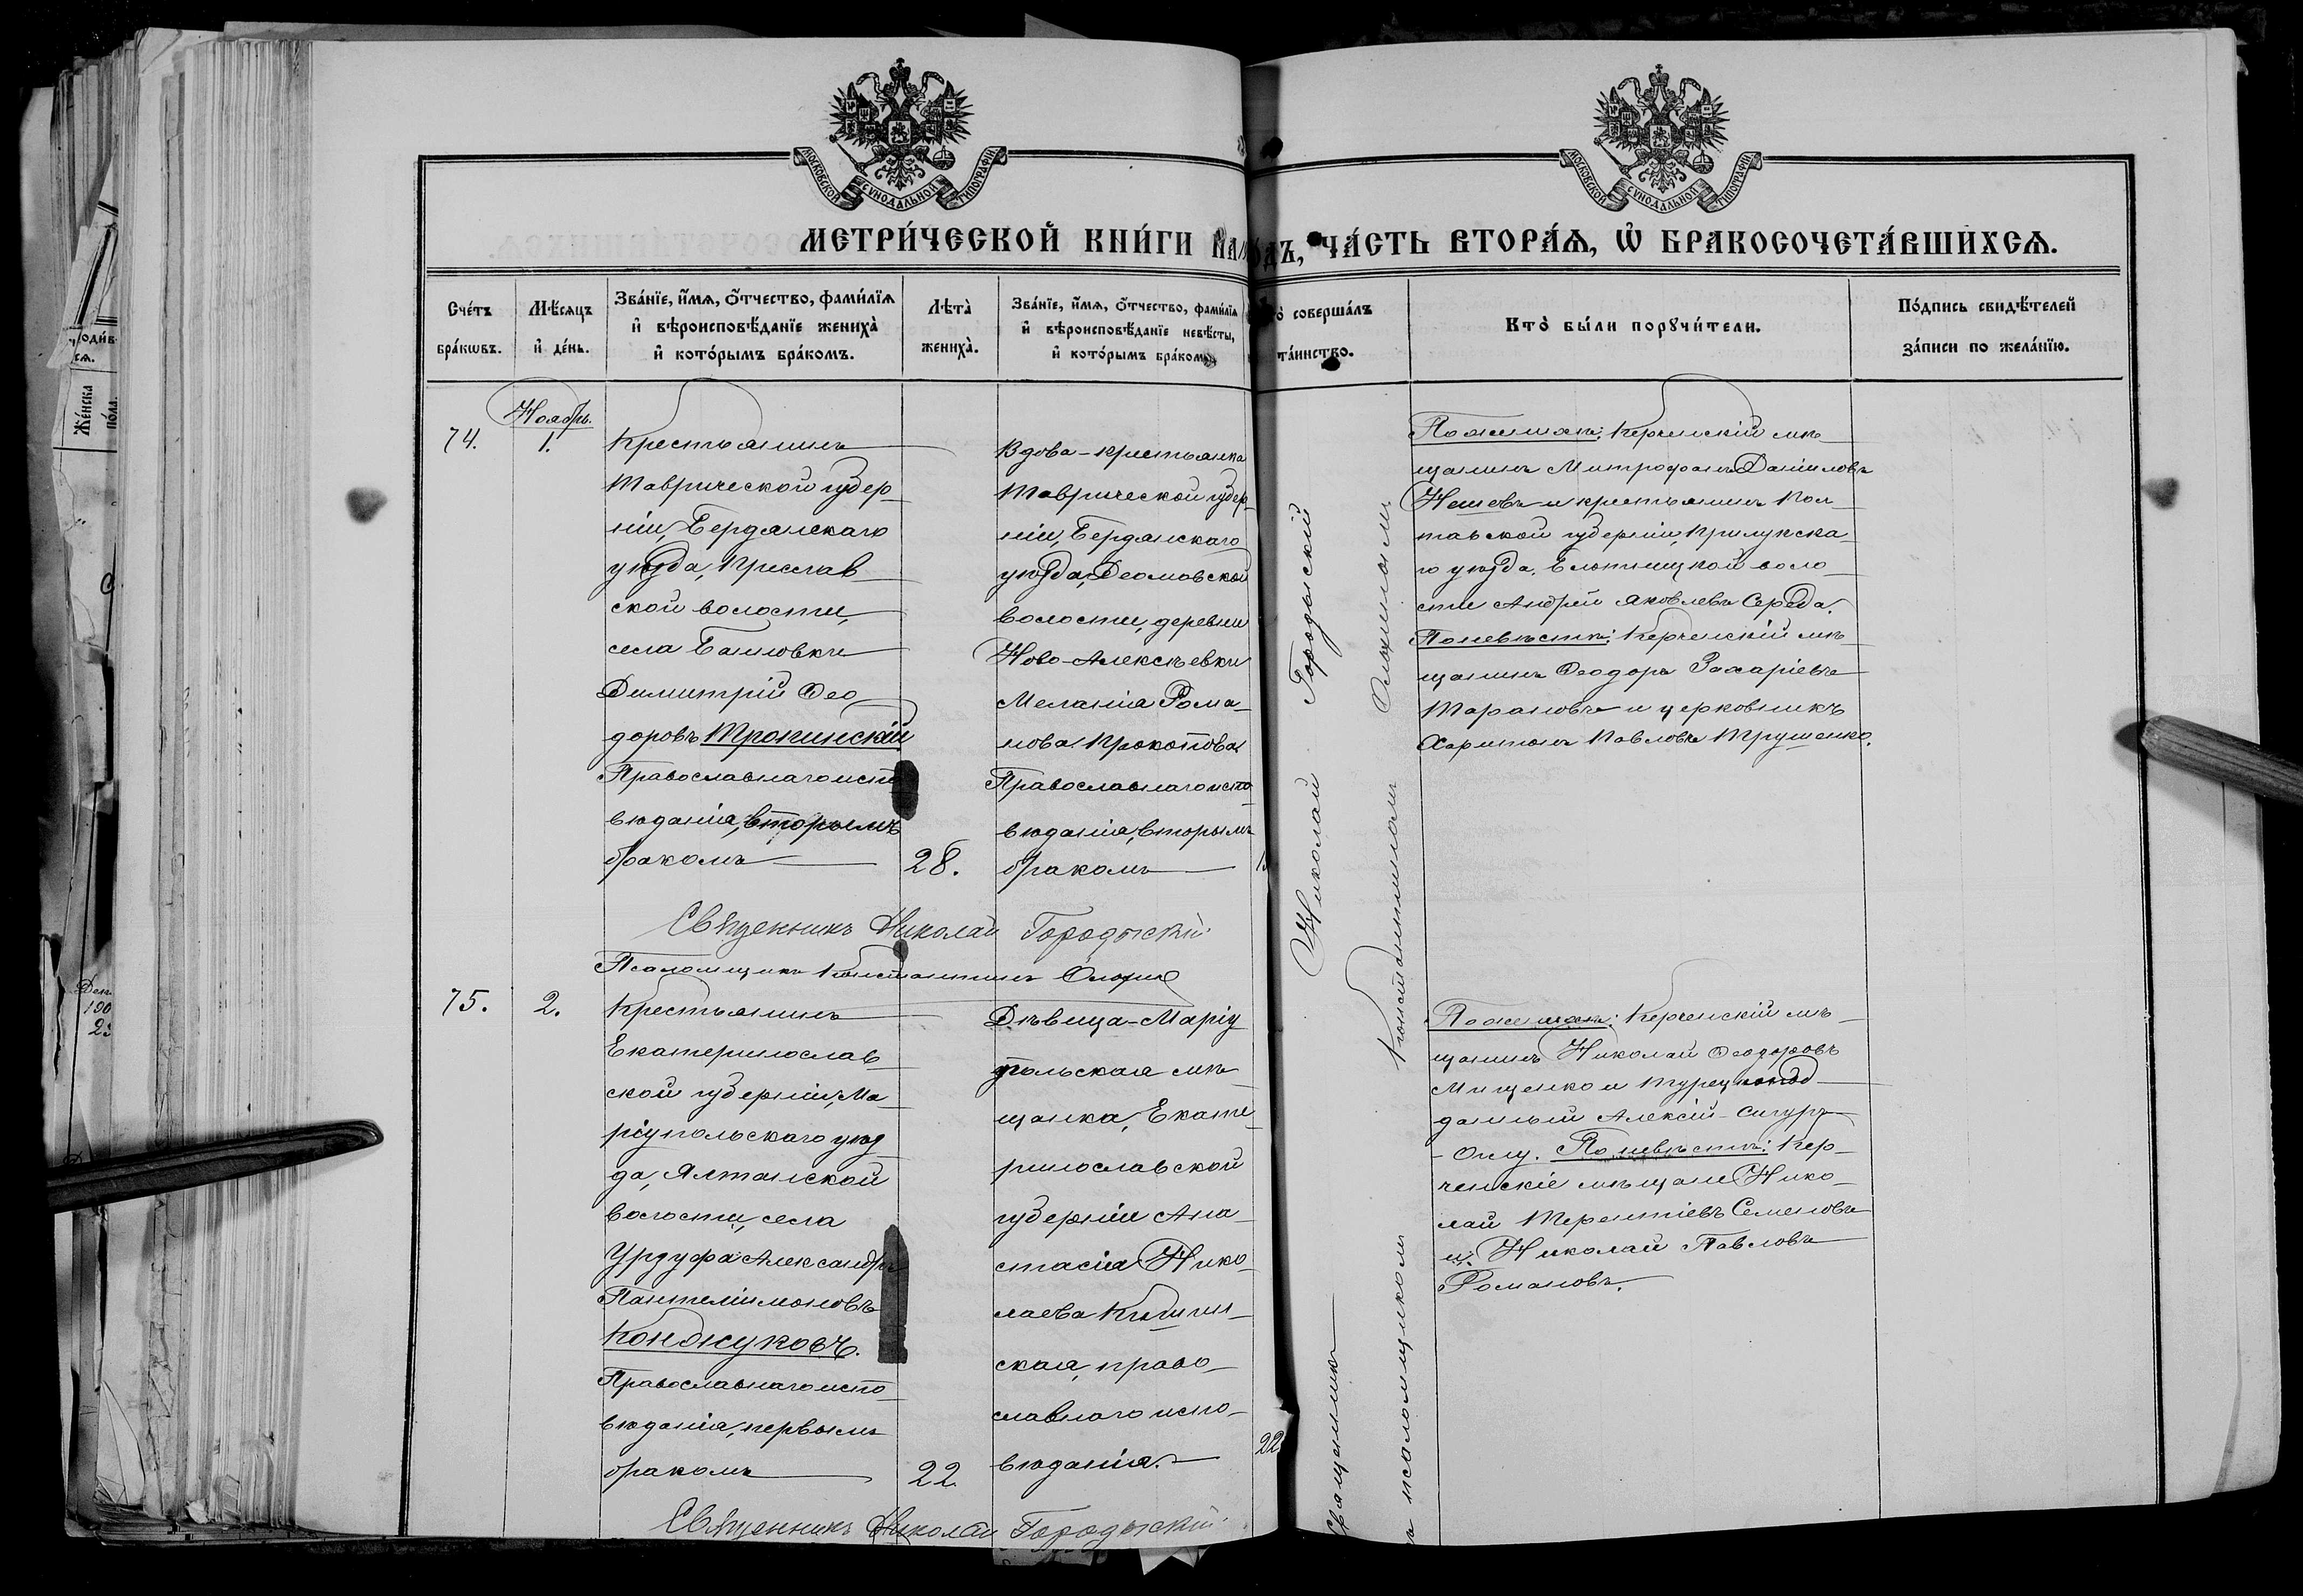 МОСКОВСКОЙ СѴНОДАЛЬНОЙ ТИПОГРАФІИ
МОСКОВСКОЙ СѴНОДАЛЬНОЙ ТИПОГРАФІИ
МЕТРИ́ЧЕСКОЙ КНИ́ГИ НА ГО́ДЪ, ЧА́СТЬ ВТОРА́Я, Ѽ БРАКОСОЧЕТА́ВШИХСЯ.
Сче́тъ
бра́кωвъ.
Мѣ́сяцъ
и҆ де́нь.
Зва́нїе, и҆́мя, ѻ҆́тчество, фами́лїя
и҆ вѣроисповѣ́данїе жениха̀
и҆ кото́рымъ бра́комъ.
Лѣта̀
жениха̀.
Зва́нїе, и҆́мя, ѻ҆́тчество, фами́лїя
и҆ вѣроисповѣ́данїе невѣ́сты,
и҆ кото́рымъ бра́комъ
соверша́лъ
та́инство.
Кто̀ бы́ли порꙋчи́тели.
По́дпись свидѣ́телей
за́писи по жела́нїю.
Ноябрь.
74.
1.
Крестьянинъ
Таврической губер-
ніи, Бердянскаго
уѣзда, Преслав
ской волости,
села Банновки
Димитрій Фео
доровъ Тропинскій
Православнаго испо
вѣданія, вторымъ
бракомъ
28.
Вдова-крестьянка
Таврической губер-
ніи, Бердянскаго
уѣзда,
волости, деревни
Ново-Алексѣевки
Меланія Рома-
нова Прокопова
Православнаго испо-
вѣданія, вторымъ
бракомъ
Священникъ Николай Городыскій
Псаломщикомъ Константиномъ
По женихѣ: Керченскій мѣ-
щанинъ Митрофанъ Даніиловъ
Нешевъ и крестьянинъ Пол-
тавской губерніи, Прилукска-
го уѣзда, воло-
сти Андрей Яковлевъ Середа.
По невѣстѣ: Керченскій мѣ-
щанинъ Феодоръ Захаріевъ
Тарановъ и церковникъ
Харитонъ Павловъ Трушенко.
Священникъ Николай Городыскій
Псаломщикъ Константинъ
75.
2.
Крестьянинъ
Екатеринослав-
ской губерніи, Ма-
ріупольскаго уѣз
да, Ялтанской
волости, села
Урзуфа Александръ
Пантелеимоновъ
Конджуковъ.
Православнаго испо-
вѣданія, первымъ
бракомъ
22
Дѣвица-Маріу
польская мѣ-
щанка, Екате-
ринославской
губерніи Ана-
стасія Нико-
лаева
ская, право-
славнаго испо-
вѣданія.
22
По женихѣ: Керченскій мѣ-
щанинъ Николай Феодоровъ
Мищенко и Турецкопод-
данный Алексій-Сигуръ
-Оглу. По невѣстѣ: Кер-
ченскіе мѣщане Нико-
лай Терентіевъ Семеновъ
и Николай Павловъ
Романовъ.
Священникъ Николай Городыскій